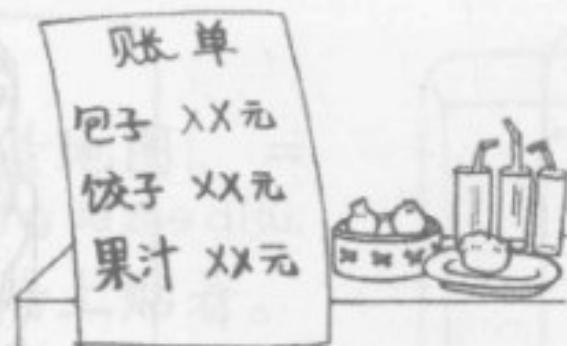 账单
包子 XX元
饺子 XX元
果汁 XX元